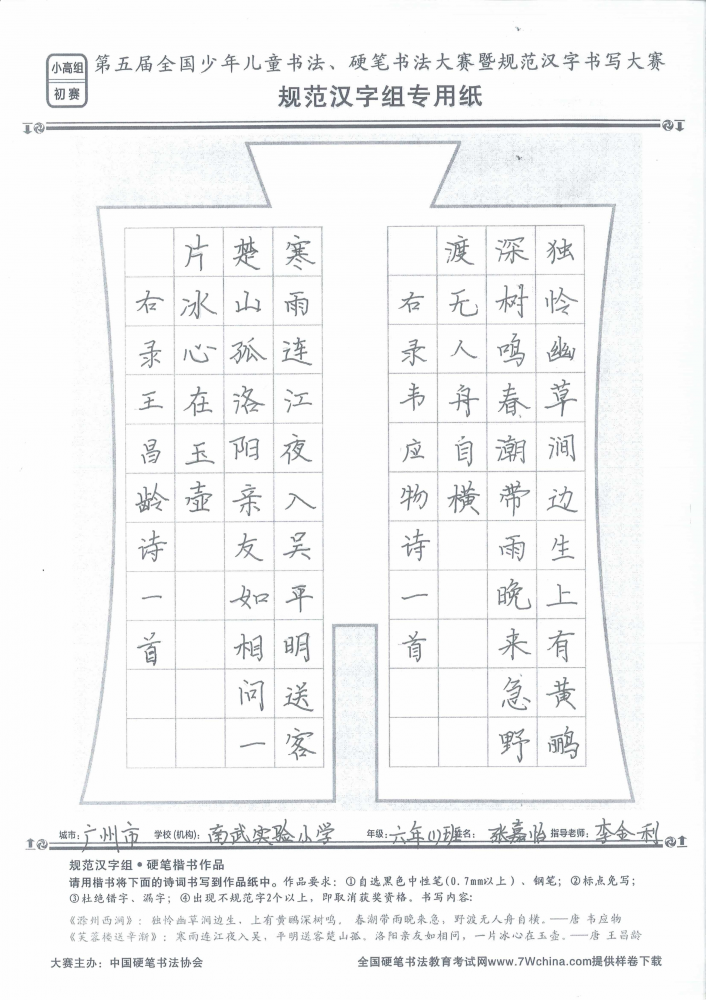 小高组
初赛
第五届全国少年儿童书法、硬笔书法大赛暨规范汉字书写大赛
规范汉字组专用纸
独怜幽草涧边生上有黄鹂
深树鸣春潮带雨晚来急野
渡无人舟自横
右录韦应物诗一首
寒雨连江夜入吴平明送客
楚山孤洛阳亲友如相问一
片冰心在玉壶
右录王昌龄诗一首
城市：广州市 学校(机构)：南武实验小学 年级：六年(1)班 姓名：张嘉怡 指导老师：李金利
规范汉字组•硬笔楷书作品
请用楷书将下面的诗词书写到作品纸中。作品要求：①自选黑色中性笔(0.7mm以上)、钢笔；②标点免写；
③杜绝错字、漏字；④出现不规范字2个以上，即取消获奖资格。书写内容：
《滁州西涧》：独怜幽草涧边生，上有黄鹂深树鸣。 春潮带雨晚来急，野渡无人舟自横。——唐 韦应物
《芙蓉楼送辛渐》：寒雨连江夜入吴，平明送客楚山孤。洛阳亲友如相问，一片冰心在玉壶。——唐 王昌龄
大赛主办：中国硬笔书法协会 全国硬笔书法教育考试网www.7Wchina.com提供样卷下载